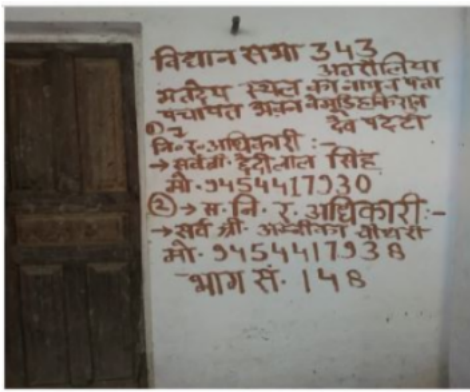 विधान सभा 343
अतरौलिया
मतदेय स्थल का नाम व पता
पंचायत भवन
देव पट्टी
नि॰र॰अधिकारी :-
→ सर्वश्री देवीलाल सिंह
मो॰9454417930
② → स॰नि॰र॰अधिकारी:-
→ सर्व श्री अम्बीका चौधरी
मो॰ 9454417938
भाग सं॰ 148